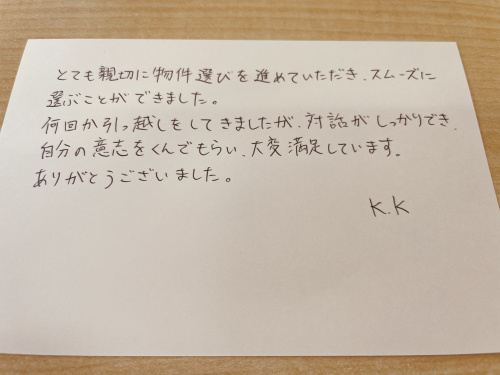 とても親切に物件選びを進めていただき、スムーズに
選ぶことができました。
何回か引っ越しをしてきましたが、対話がしっかりでき、
自分の意志をくんでもらい、大変満足しています。
ありがとうございました。
K.K